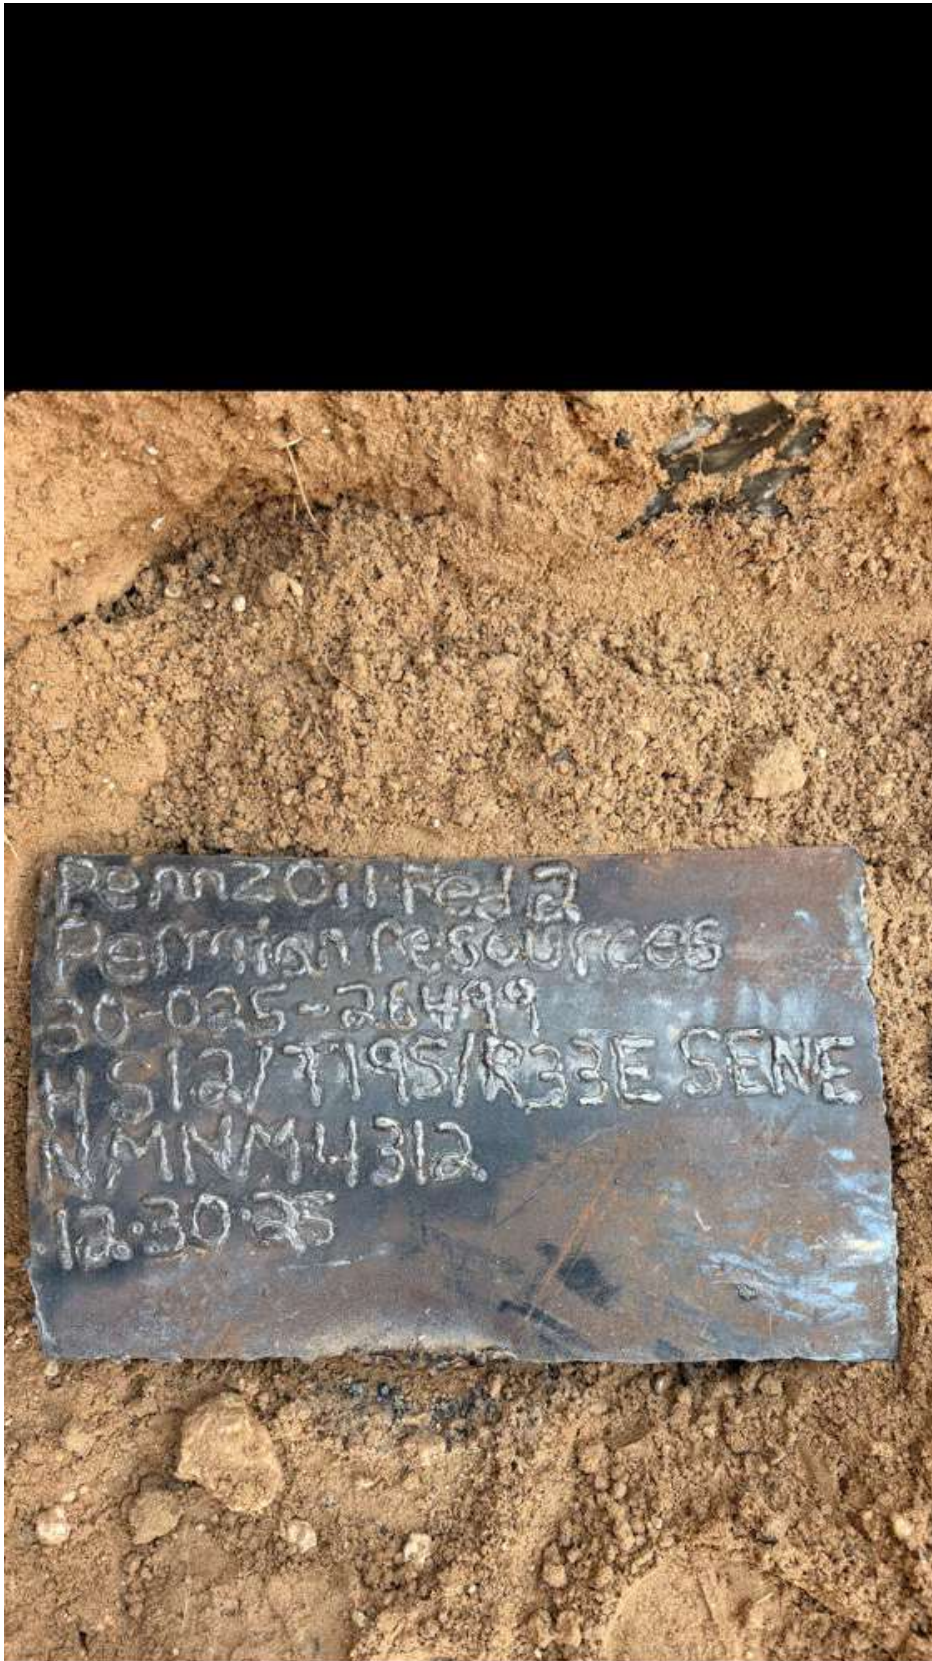 Pennzoil Fed 2
Permian resources
30-025-26499
H S12/T19S/R33E SENE
NMNM4312
12.30.25